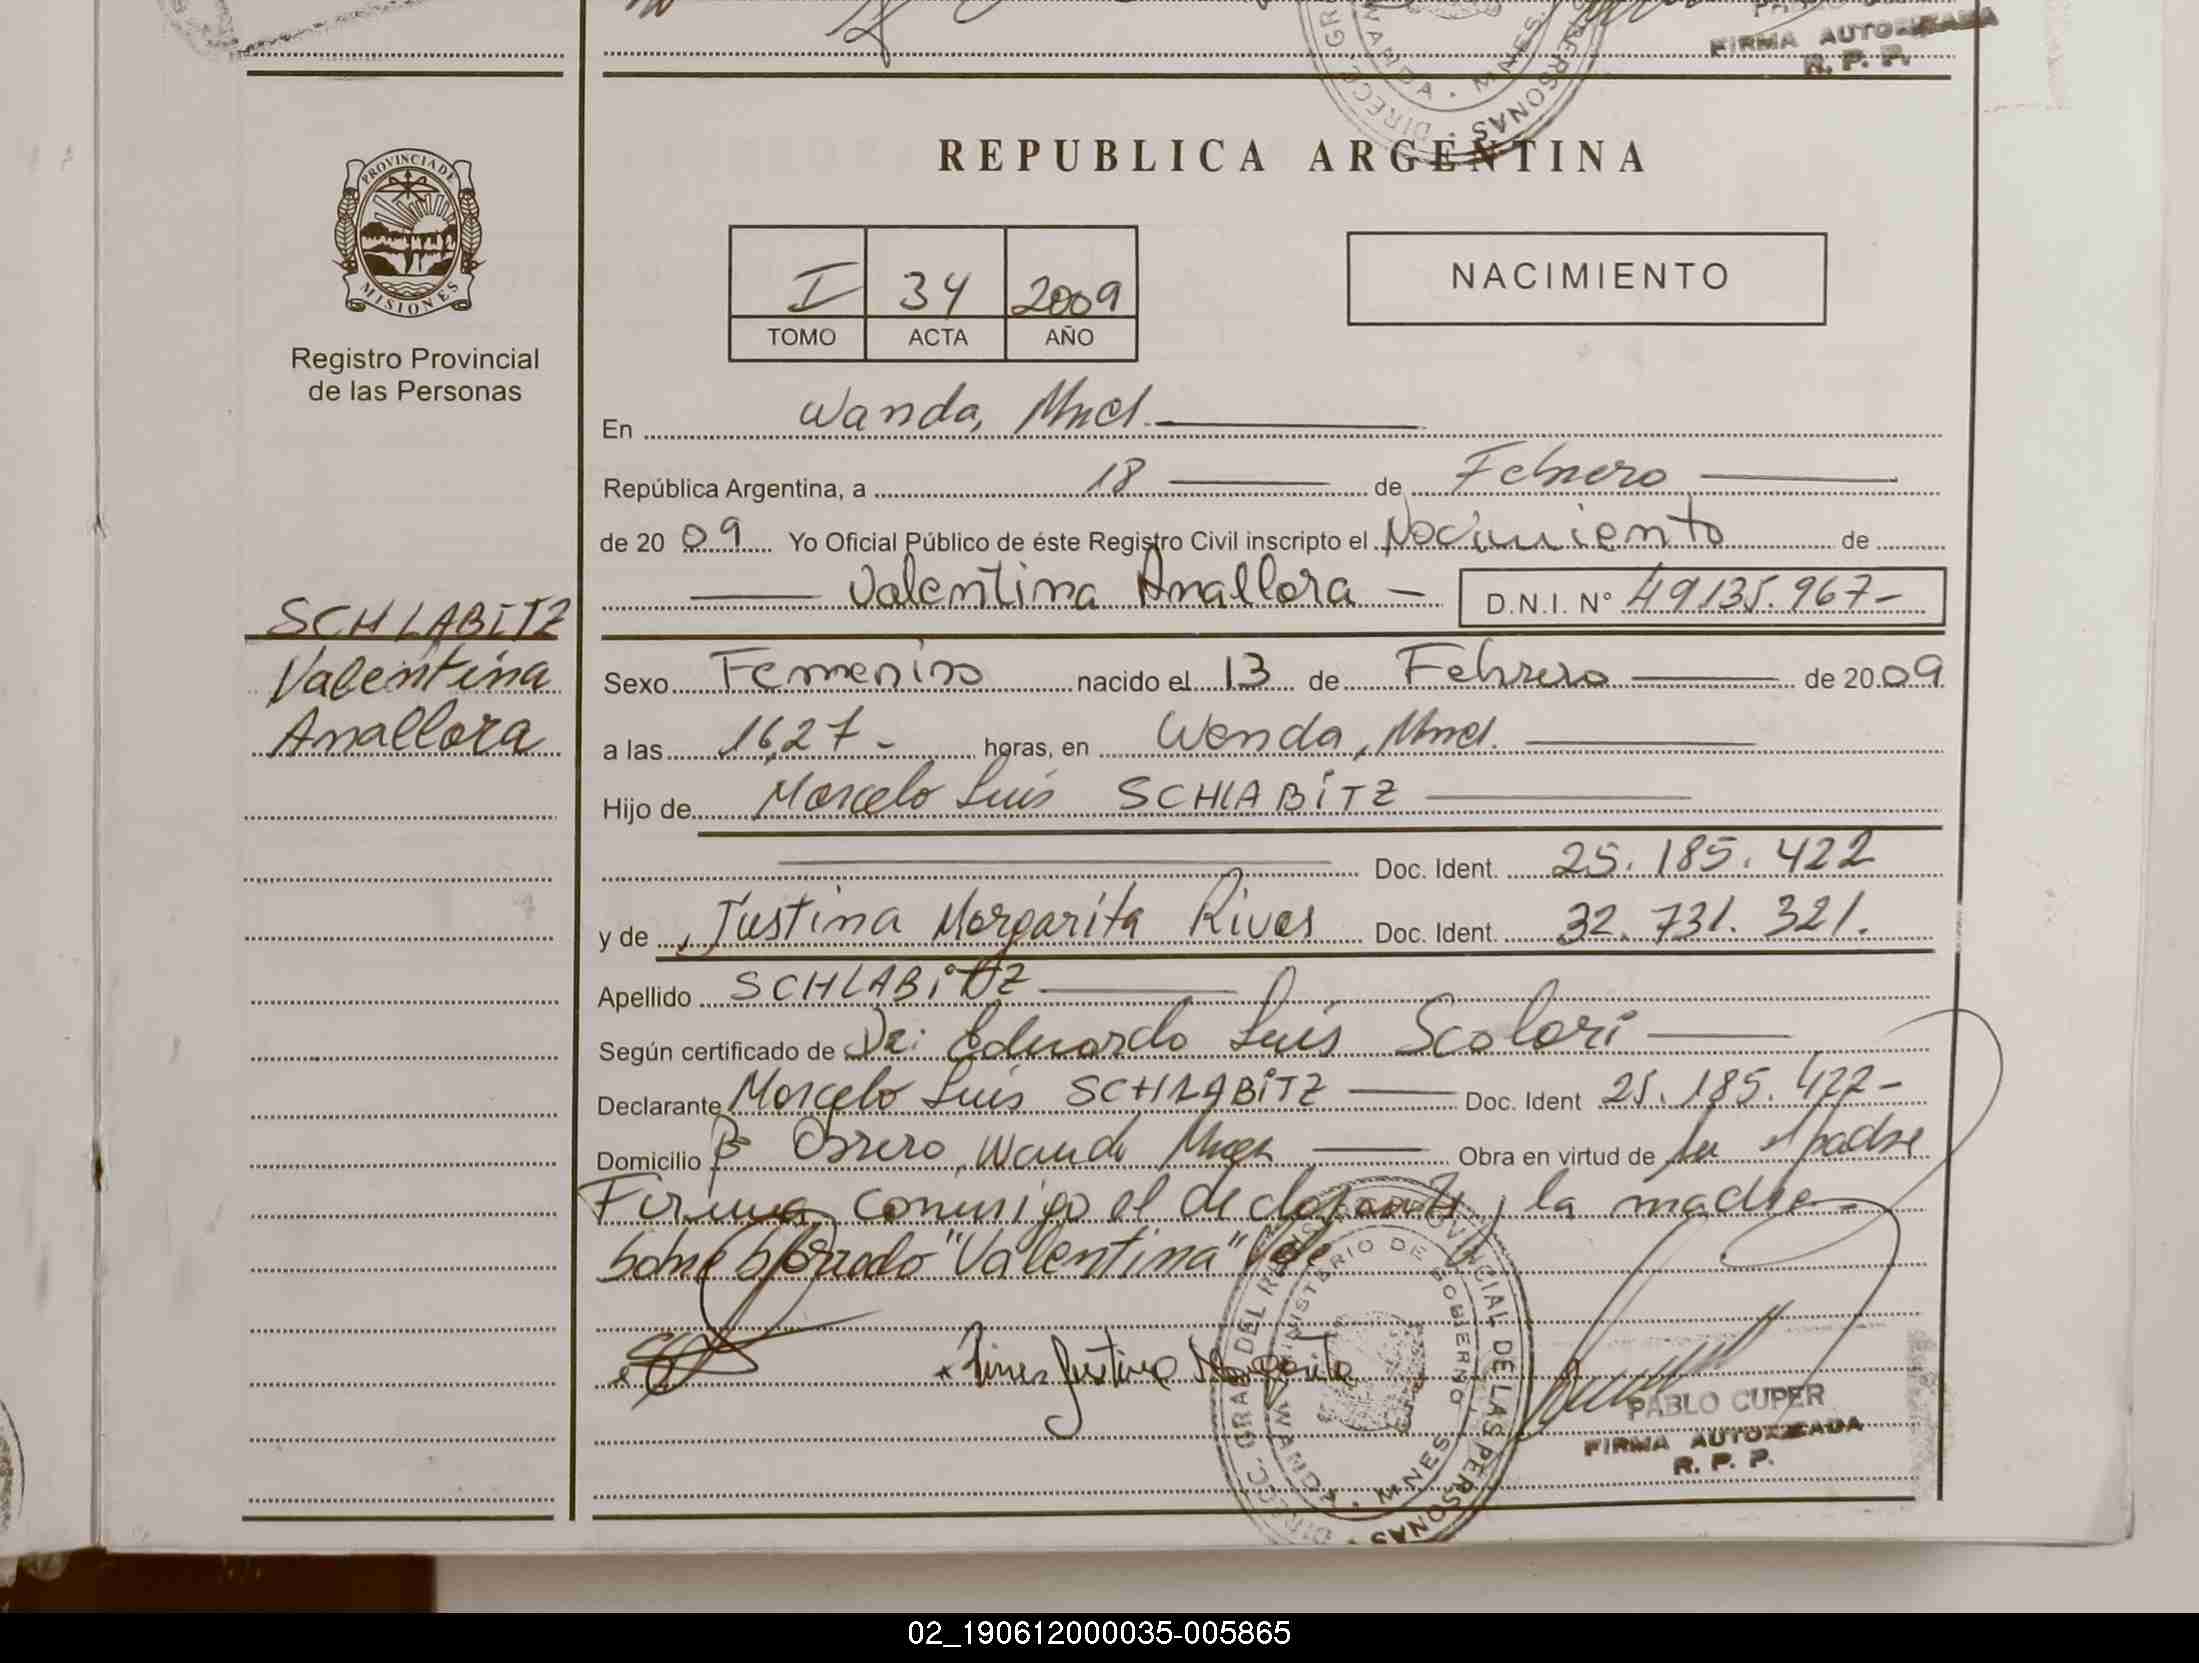 FIRMA AUTORIZADA
R. P. P.
PROVINCIA DE
MISIONES
Registro Provincial
de las Personas
REPUBLICA ARGENTINA
I 34 2009
TOMO ACTA AÑO
NACIMIENTO
En Wanda, Mnes.
República Argentina, a 18 de Febrero
de 20 09 Yo Oficial Público de éste Registro Civil inscripto el Nacimiento de
Valentina Anallora D.N.I. N° 49135.967-
SCHLABITZ
Valentina
Anallora
Sexo Femenino nacido el 13 de Febrero de 20 09
a las 16,27- horas, en Wanda, Mnes.
Hijo de Marcelo Luis SCHLABITZ
Doc. Ident. 25.185.422
y de Justina Margarita Rives Doc. Ident. 32.731.321.
Apellido SCHLABITZ
Según certificado de Dr: Eduardo Luis Scolari
Declarante Marcelo Luis SCHLABITZ Doc. Ident 25.185.422-
Domicilio B° Obrero, Wanda Mnes Obra en virtud de ser el padre
Firma conmigo el declarante y la madre-
sobre borrado "Valentina" Vale
DIRECC. GRAL DEL REGISTRO PROVINCIAL DE LAS PERSONAS
MINISTERIO DE GOBIERNO
WANDA - MNES
PABLO CUPER
FIRMA AUTORIZADA
R. P. P.
02_190612000035-005865